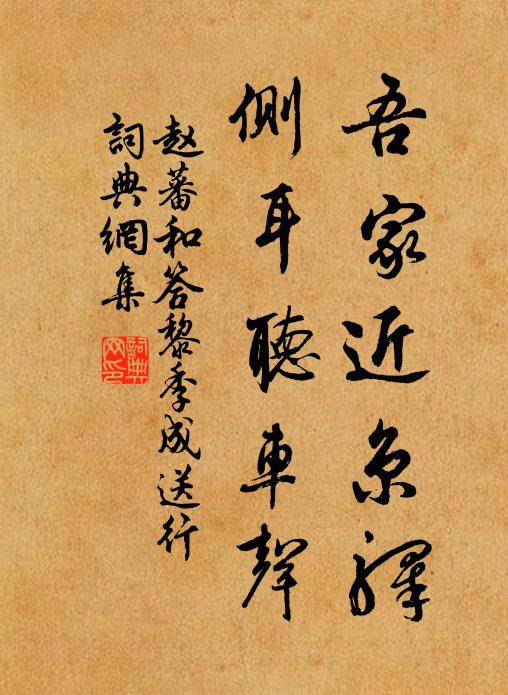 吾家近京驛
側耳聽車聲
赵蕃和答黎季成送行
詞典網集
詞典网印